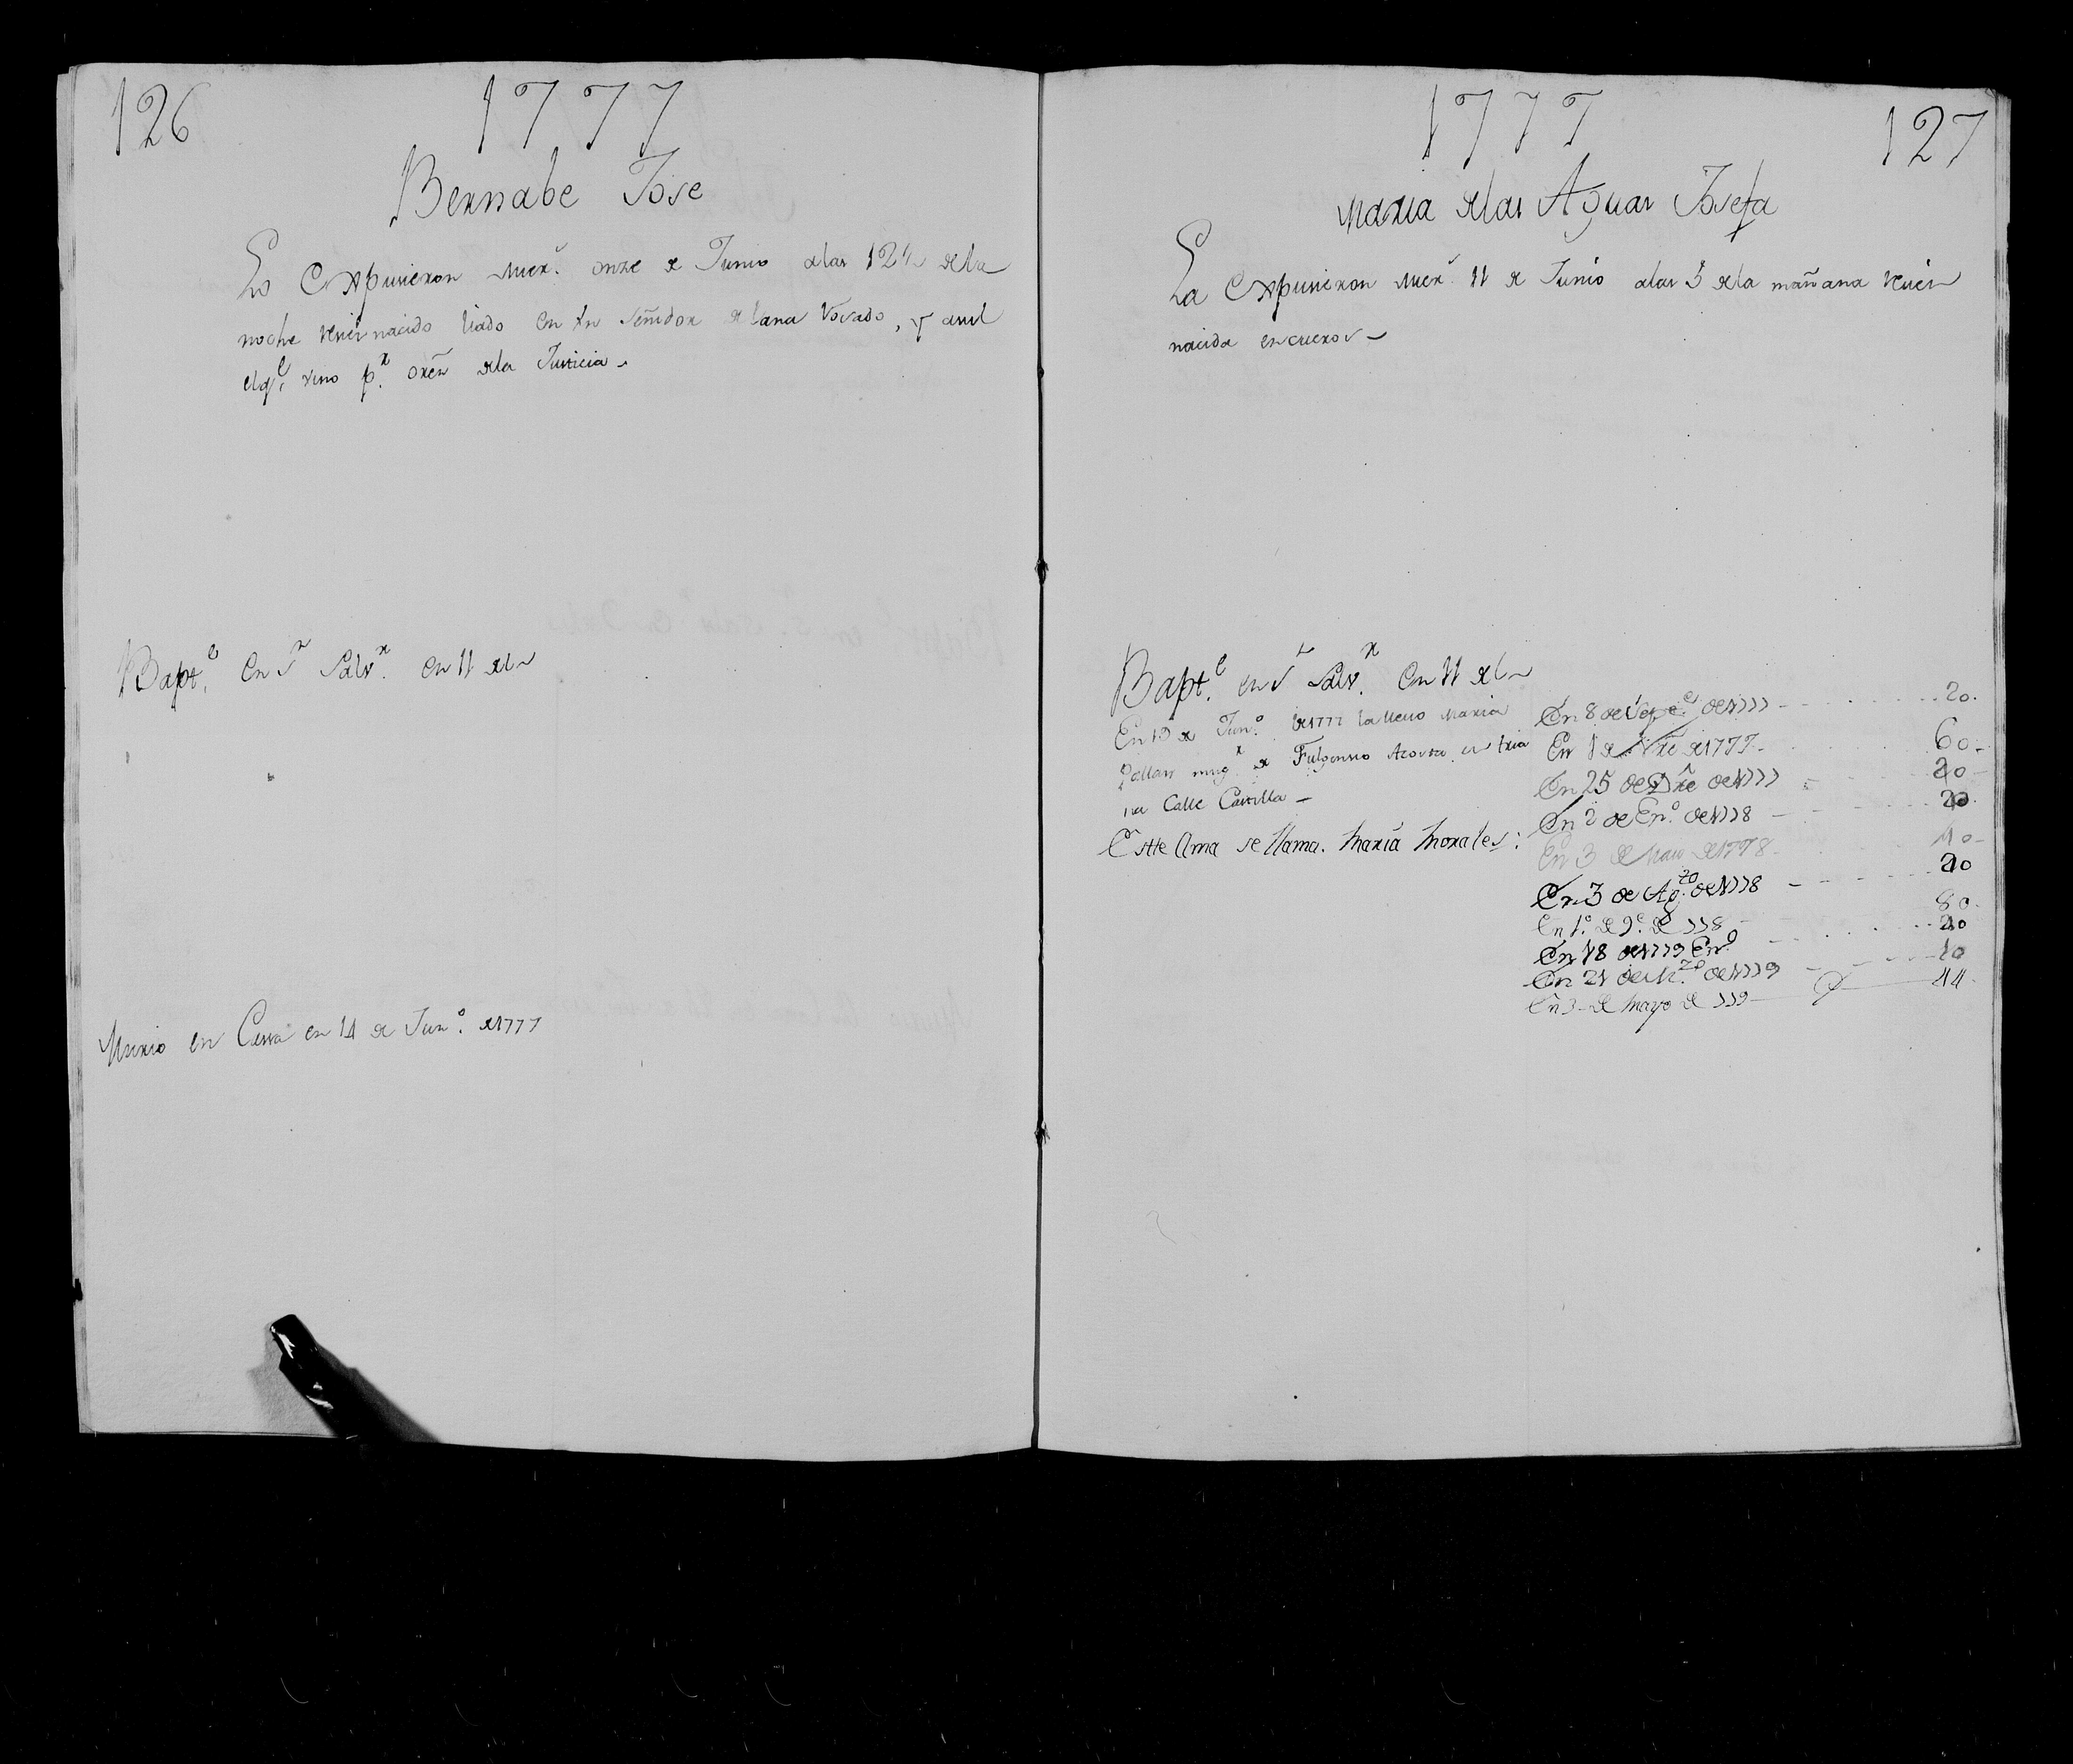 126
1777
Bernabe Jose
Lo Expusieron Mierˢ. onze de Junio alas 12 dela
noche recien nacido liado en un señidor de lana rosado, y azul
elqᵉ. vino pʳ. oren dela Justicia
Baptᵉ. en Sⁿ Salvʳ. en 11 del
Murio en Cassa en 14 de Junᵒ. de 1777
1777
127
Maria delas Aguas Josefa
La Expusieron Mierˢ. 11 de Junio alas 3 dela mañana recien
nacida en cueros
Baptᵉ. en Sⁿ Salvʳ. en 11 del
En 19 de Junᵒ. de 1777 la llevo Maria
mugʳ de Fulgensio Acosta en tria
na Calle Castilla
Este Ama se llama. Maria Morales:
En 8 de Sepᵉ de 1777 20.
En 1 de Nre de 1777 60
En 25 de Dre de 1777 20
En 2 de Enᵒ. de 1778 20
En 3 de Maio de 1778 40
En 3 de Agᵗᵒ de 1778 20
En 1ᵒ. de 9ᵉ. de 778 80
En 18 de 1779 Enᵒ 20
En 21 de Mᶻᵒ de 1779 10
En 3 de Mayo de 779 44